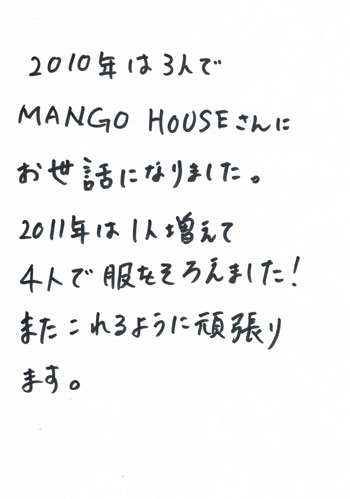 2010年は3人で
MANGO HOUSEさんに
お世話になりました。
2011年は1人増えて
4人で服をそろえました!
またこれるように頑張り
ます。